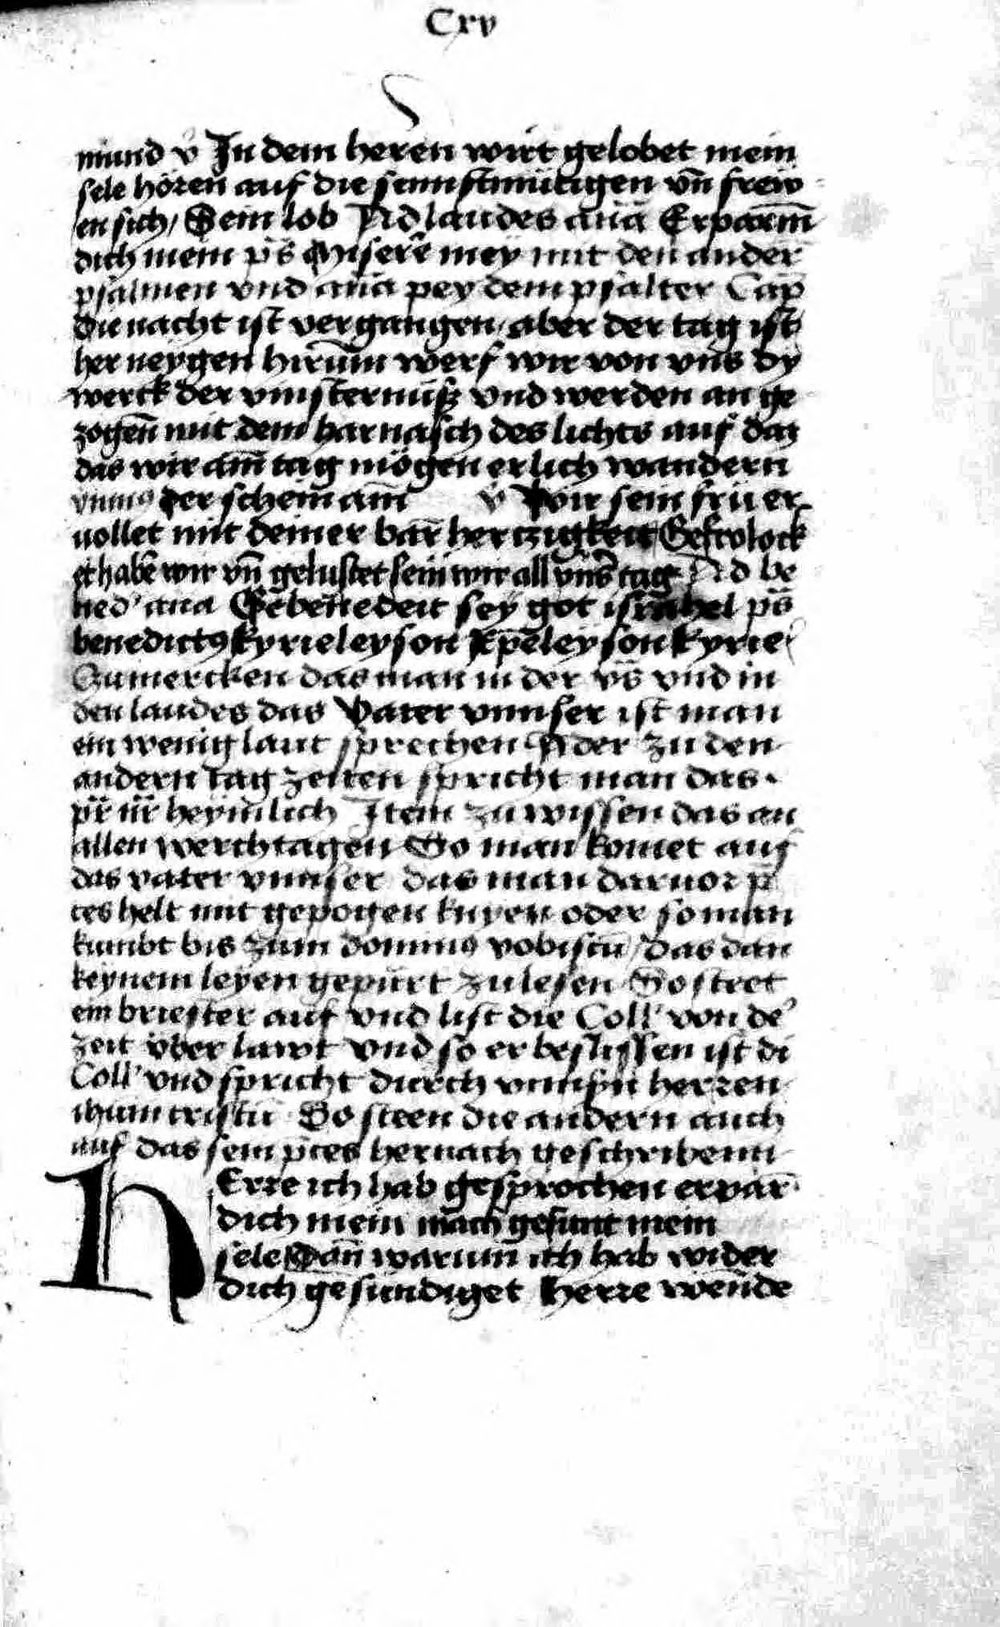 Cxv
mund v̄ In dem heren wirt gelobet mein
sele hören auf die sennftmütigen vn̄ frew
en sich / Sein lob Ad laudes an̄a Erparm̄
dich mein p̄s Miserē mey mit den ander
psalmen vnd an̄a pey dem psalter Cap̄
Die nacht ist vergangen / aber der tag ist
her neygen hirum̄ werf wir von vns dy
werck der vinsternüsz vnd werden an ge
zogen̄ mit dem harnasch des lichts auf daz
das wir am̄ tag mögen erlich wandern
ymnꝰ der schein am̄ v̄ Wir sein frü er
uollet mit deiner bar̄ hertzigkeit Gefrolock
et habē wir vn̄ gelustet sein wir all vns̄ tag Ad be
ned' ana Gebenedeit sey got israhel p̄s
benedictꝰ kyrieleyson xp̄eleyson kyrie
Zu mercken das man in der vs̄ vnd in
den laudes das Vater vnnser ist man
ein wenig laut sprechen Aber zu den
andern tag zeiten spricht man das
pr̄ nr̄ heymlich Item zu wissen das an
allen werchtagen So man komet auf
das vater vnnser das man daruor p̄
ces helt mit gepogen knyen oder so man
kumbt bis zum dominꝰ vobiscū / das dan
keynem leyen gepürt zu lesen So stet
ein briester auf vnd list die Coll' von de'
zeit vber lawt vnd so er beslissen ist di
Coll' vnd spricht durch vnnsn̄ herren
ihum cristū So steen die andern auch
auf das sein p̄ces hernach geschribenn
HErre ich hab gesprochen erpar̄
dich mein mach gesunt mein
sele Dan̄ warum̄ ich hab wider
dich gesündiget Herre wende